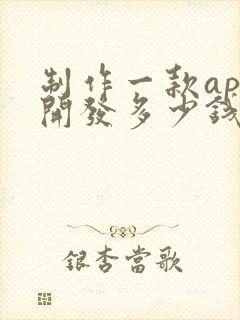 制作一款ap
開發多少錢
銀杏當歌